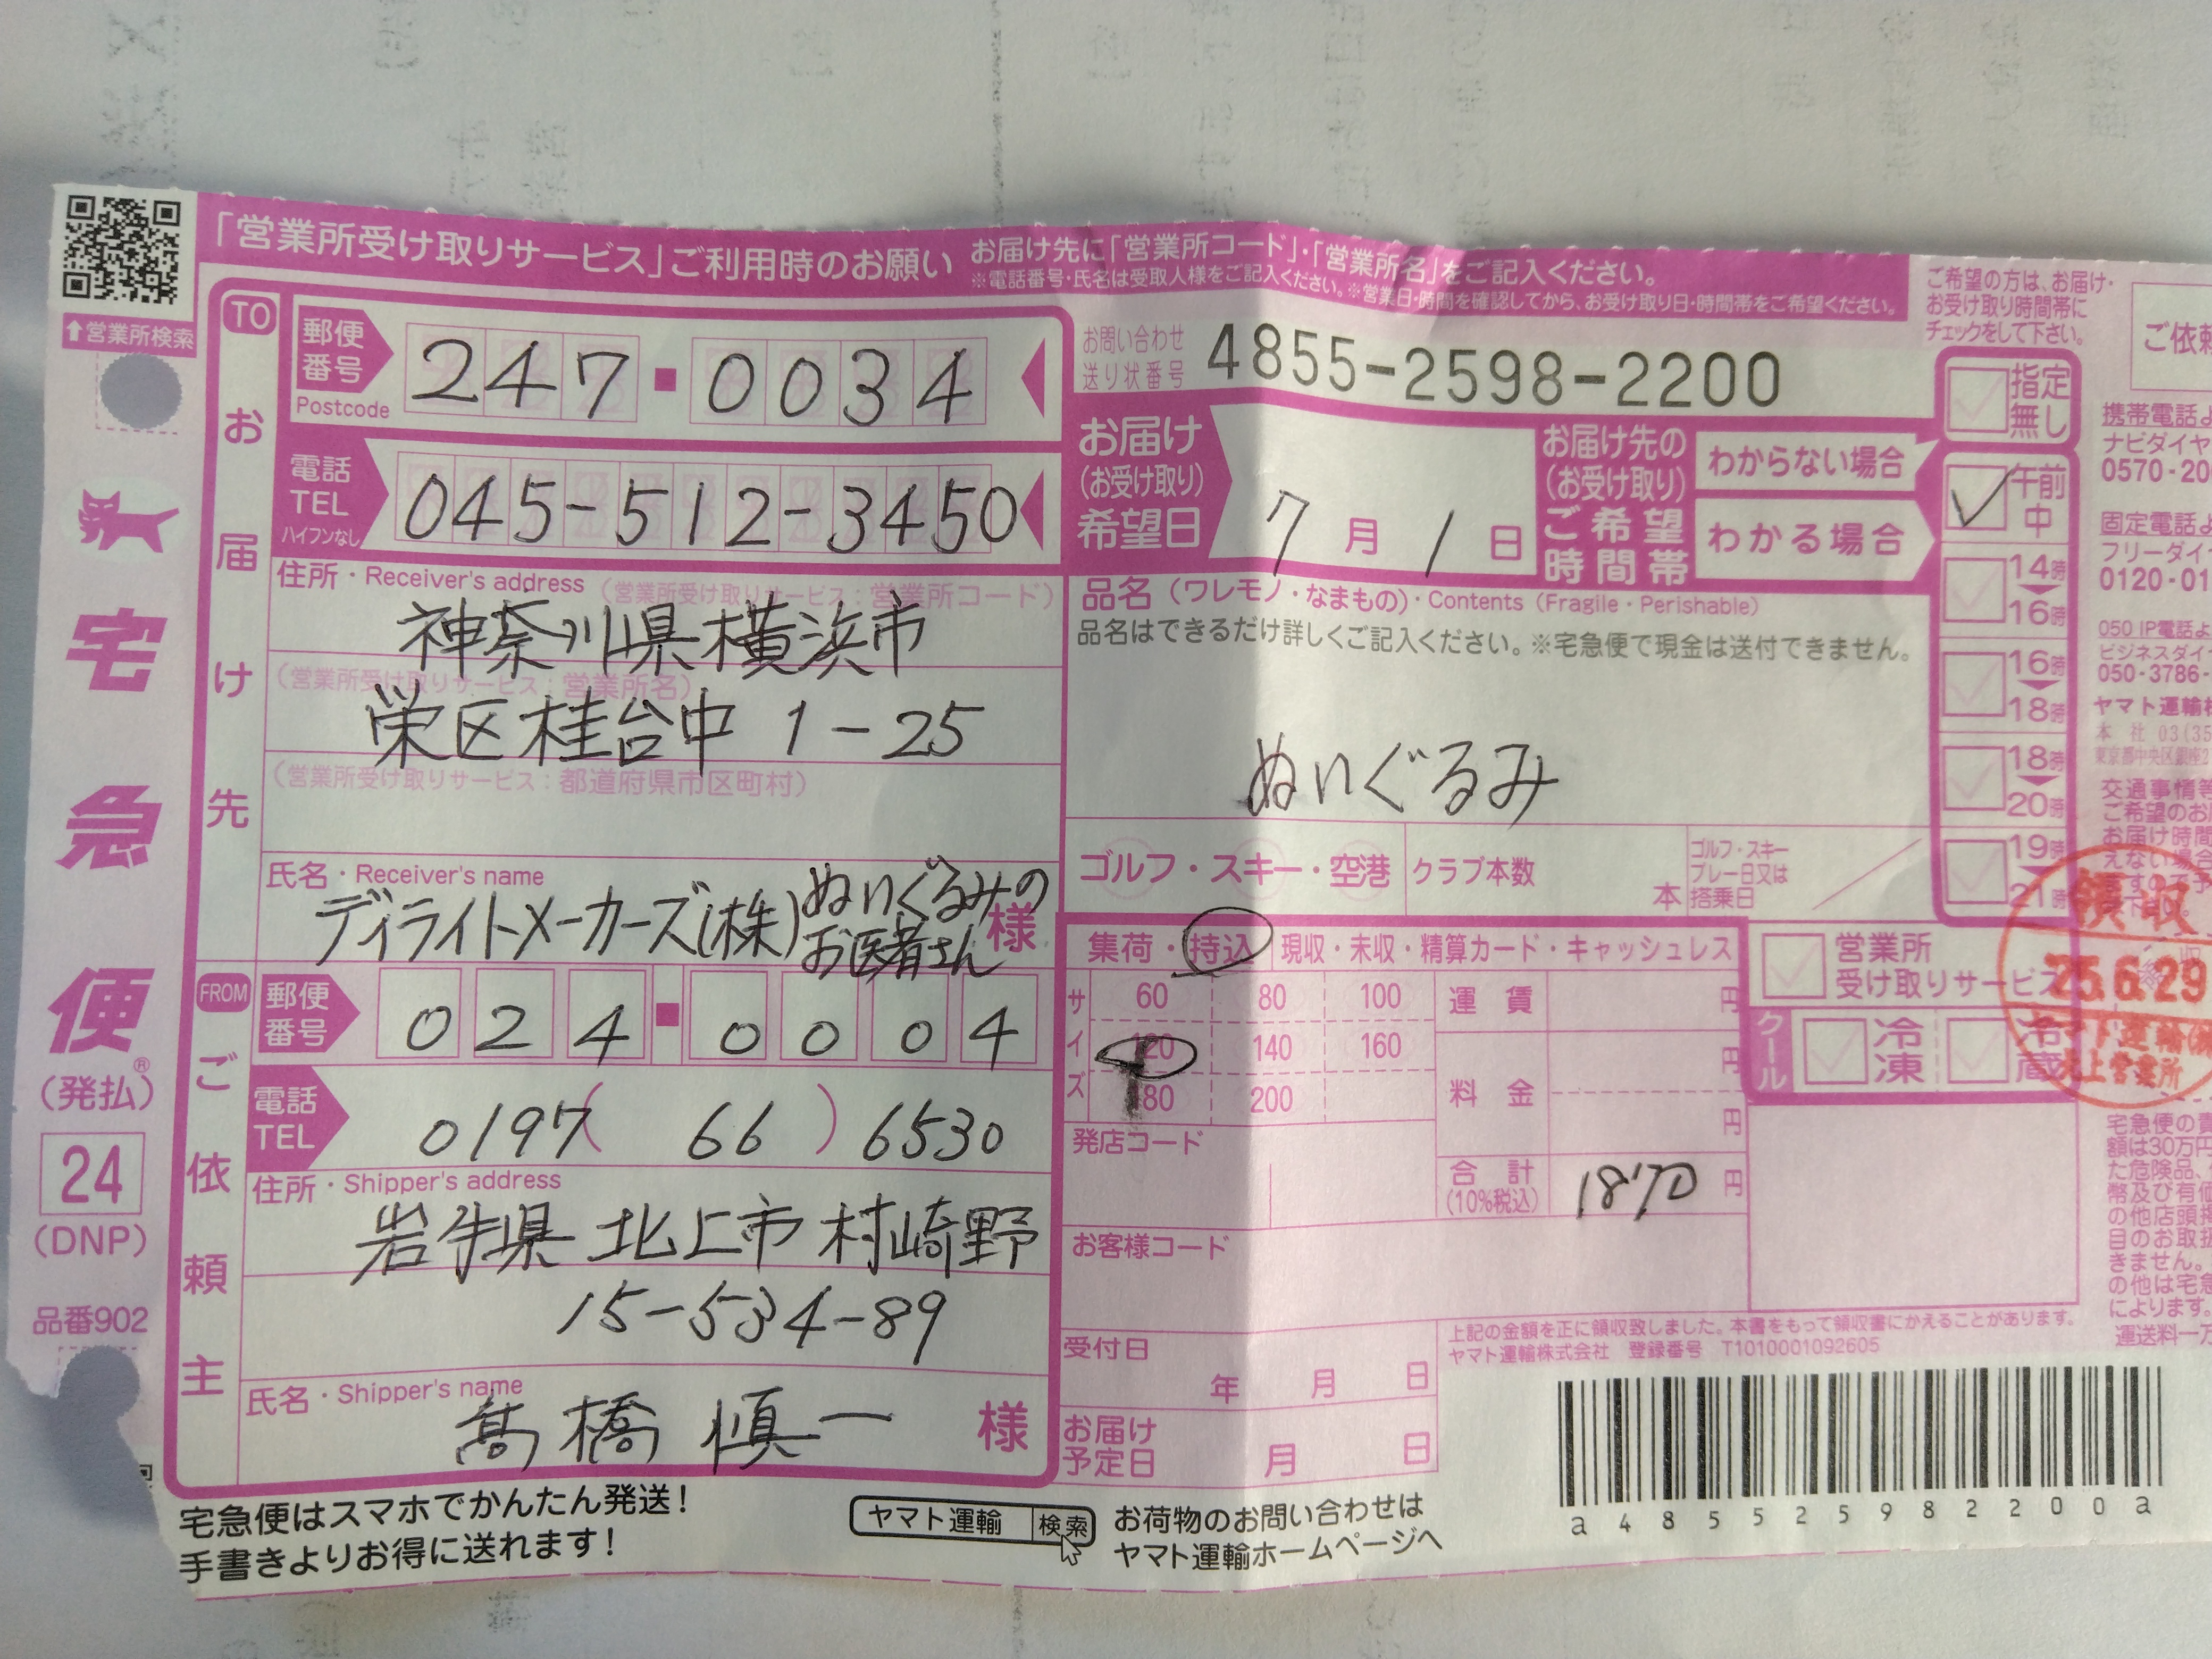 「営業所受け取りサービス」ご利用時のお願い お届け先に「営業所コード」・「営業所名」をご記入ください。
※電話番号・氏名は受取人様をご記入ください。※営業日・時間を確認してから、お受け取り日・時間帯をご希望ください。
↑営業所検索
宅急便®
(発払)
24
(DNP)
品番902
TO
お届け先
郵便番号
Postcode
247-0034
電話
TEL
ハイフンなし
045-512-3450
住所・Receiver's address (営業所受け取りサービス:営業所コード)
神奈川県横浜市
(営業所受け取りサービス:営業所名)
栄区桂台中 1-25
(営業所受け取りサービス:都道府県市区町村)
氏名・Receiver's name
ディライトメーカーズ(株)ぬいぐるみの
お医者さん
様
FROM
ご依頼主
郵便番号
024-0004
電話
TEL
0197(66)6530
住所・Shipper's address
岩手県 北上市 村崎野
15-534-89
氏名・Shipper's name
髙橋 慎一 様
お問い合わせ
送り状番号
4855-2598-2200
お届け
(お受け取り)
希望日
7月1日
お届け先の
(お受け取り)
ご希望
時間帯
わからない場合
わかる場合
ご希望の方は、お届け・
お受け取り時間帯に
チェックをして下さい。
指定無し
午前中
14時
16時
16時
18時
18時
20時
19時
21時
品名(ワレモノ・なまもの)・Contents(Fragile・Perishable)
品名はできるだけ詳しくご記入ください。※宅急便で現金は送付できません。
ぬいぐるみ
ゴルフ・スキー・空港
クラブ本数
本
ゴルフ・スキー
プレー日又は
搭乗日
集荷・持込
現収・未収・精算カード・キャッシュレス
サイズ
60 80 100
120 140 160
180 200
運賃 円
料金 円
円
合計
(10%税込)
1870 円
発店コード
お客様コード
受付日
年 月 日
お届け
予定日
月 日
営業所
受け取りサービス
クール
冷凍
冷蔵
領収
25.6.29
ヤマト運輸㈱
北上営業所
上記の金額を正に領収致しました。本書をもって領収書にかえることがあります。
ヤマト運輸株式会社 登録番号 T1010001092605
a485525982200a
宅急便はスマホでかんたん発送!
手書きよりお得に送れます!
ヤマト運輸 検索
お荷物のお問い合わせは
ヤマト運輸ホームページへ
ご依
携帯電話よ
ナビダイヤ
0570-20
固定電話よ
フリーダイ
0120-01
050 IP電話よ
ビジネスダイ
050-3786-
ヤマト運輸
本社 03(35
東京都中央区銀座2
交通事情等
ご希望のお
お届け時間
宅急便の
額は30万円
た危険品、
幣及び有価
の他店頭
目のお取扱
きません。
の他は宅急
によります。
運送料一万